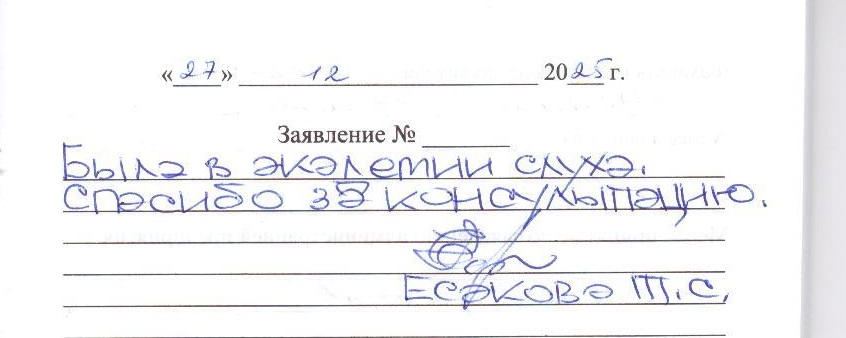 «27» 12 2025 г.
Заявление №
Была в экэлемии слуха.
Спасибо за консультацию.
Есакова Т.С.